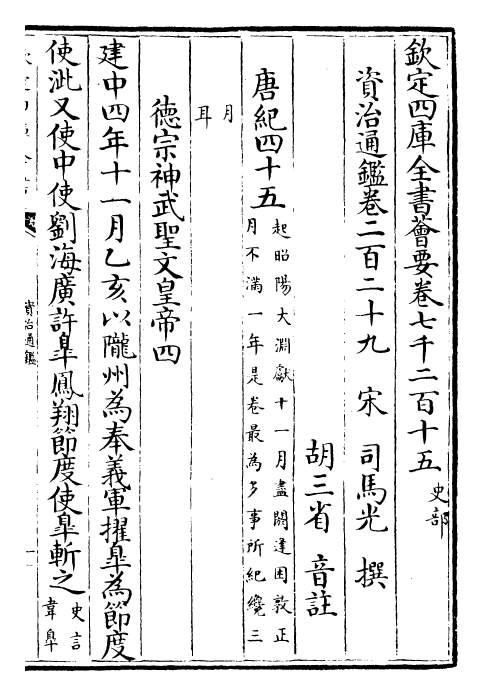 欽定四庫全書薈要卷七千二百十五 史部
資治通鑑卷二百二十九 宋 司馬光 撰
胡三省 音註
唐紀四十五 起昭陽大淵獻十一月盡閼逢困敦正
月不滿一年是卷最為多事所紀纔三
月
耳
德宗神武聖文皇帝四
建中四年十一月乙亥以隴州為奉義軍擢皐為節度
使泚又使中使劉海廣許皐鳳翔節度使皐斬之 史言
韋皐
資治通鑑
一